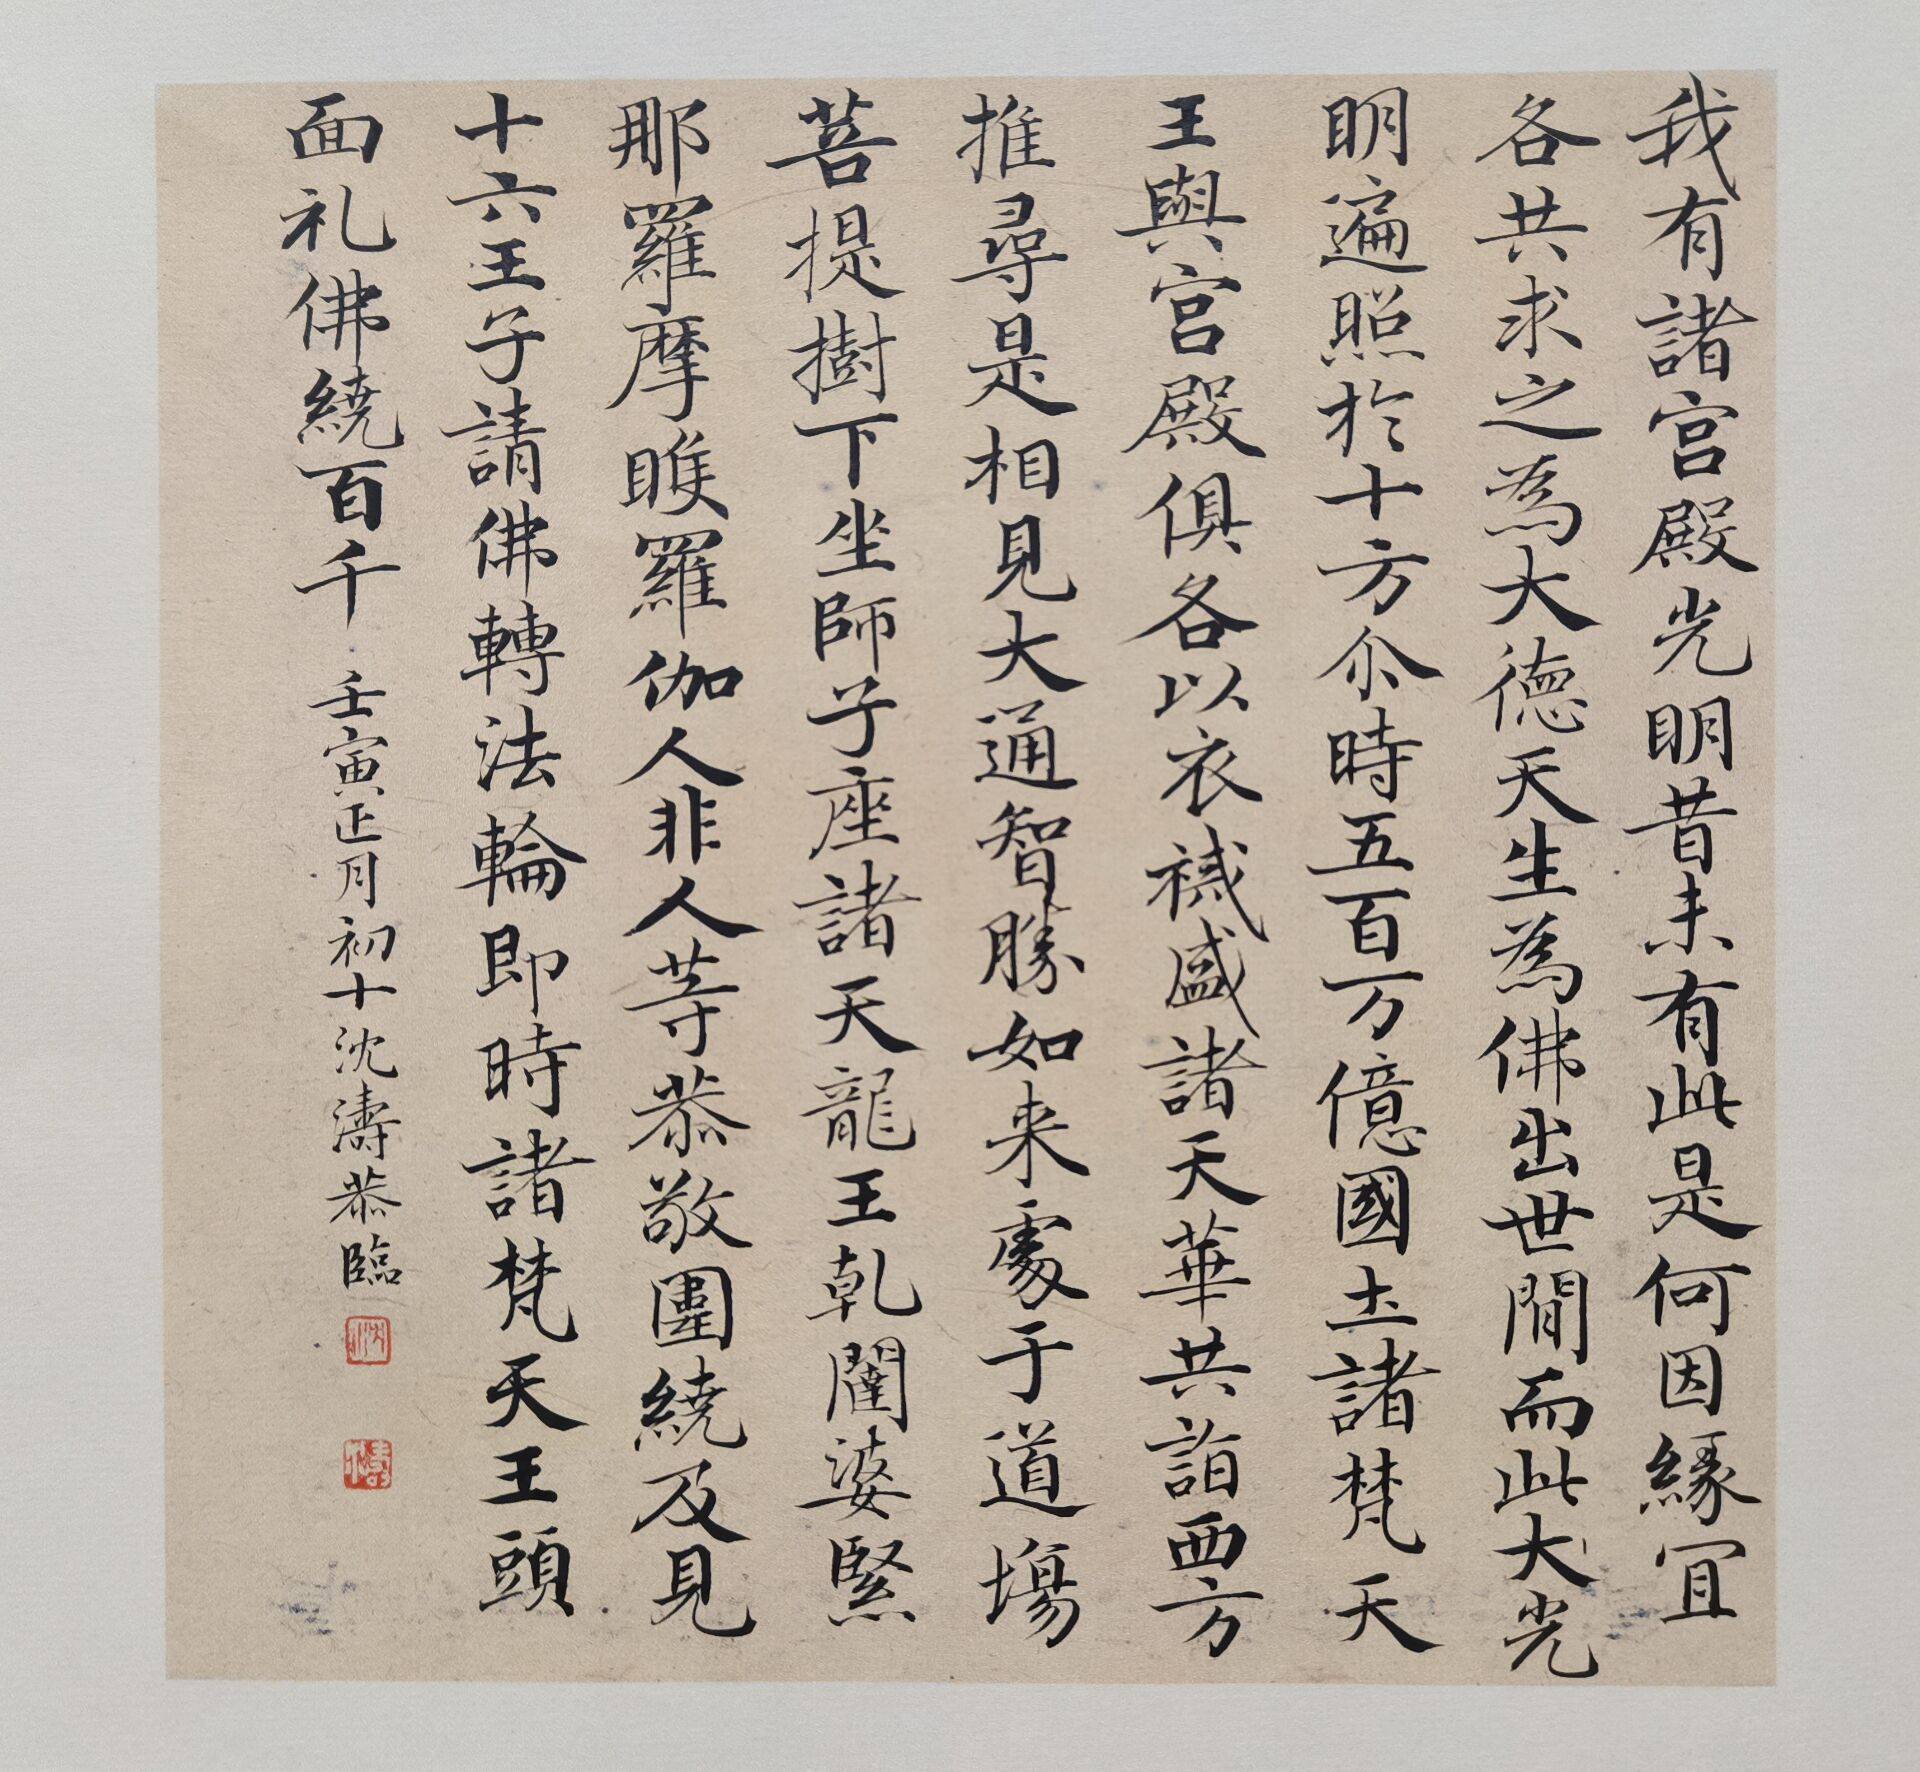 我有諸宫殿光明昔未有此是何因緣宜
各共求之為大德天生為佛出世間而此大光
明遍照於十方尒時五百万億國土諸梵天
王與宫殿俱各以衣祴盛諸天華共詣西方
推尋是相見大通智勝如来處于道場
菩提樹下坐師子座諸天龍王乾闥婆緊
那羅摩睺羅伽人非人等恭敬圍繞及見
十六王子請佛轉法輪即時諸梵天王頭
面礼佛繞百千
壬寅正月初十沈濤恭臨
沈
濤